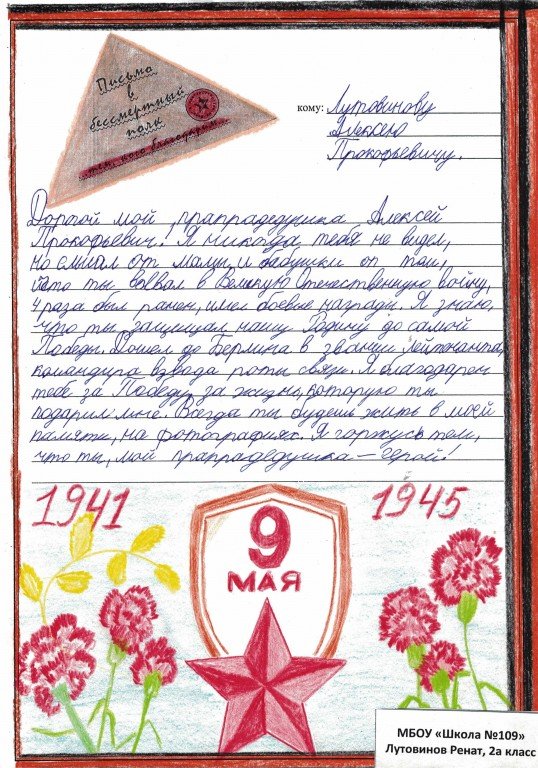 Письмо
в
бессмертный
полк
кому: Лутовинову
Алексею
Прокофьевичу.
Дорогой мой прапрадедушка, Алексей
Прокофьевич! Я никогда тебя не видел,
но слышал от мамы и бабушки от том,
что ты воевал в Великую Отечественную войну,
4 раза был ранен, имел боевые награды. Я знаю,
что ты защищал нашу Родину до самой
Победы. Дошел до Берлина в звании лейтенанта,
командира взвода роты связи. Я благодарен
тебе за Победу, за жизнь, которую ты
подарил мне. Всегда ты будешь жить в моей
памяти, на фотографиях. Я горжусь тем,
что ты, мой прапрадедушка – герой!
1941
1945
9
МАЯ
МБОУ «Школа №109»
Лутовинов Ренат, 2а класс